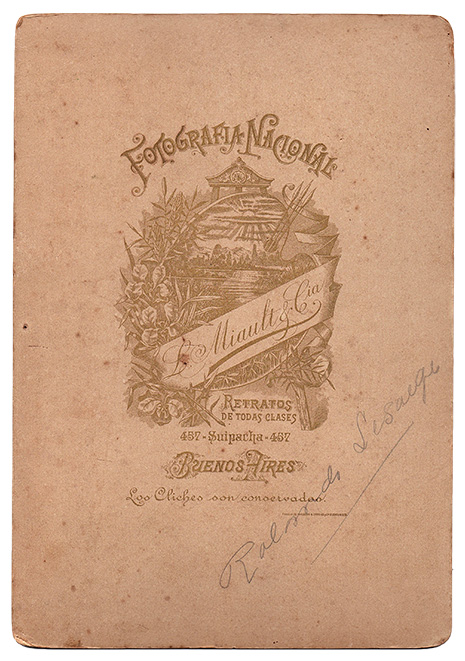 FOTOGRAFIA NACIONAL
F. Miault & Cia
RETRATOS
DE TODAS CLASES
457-Suipacha-457
BUENOS AIRES
Los Cliches son conservados.